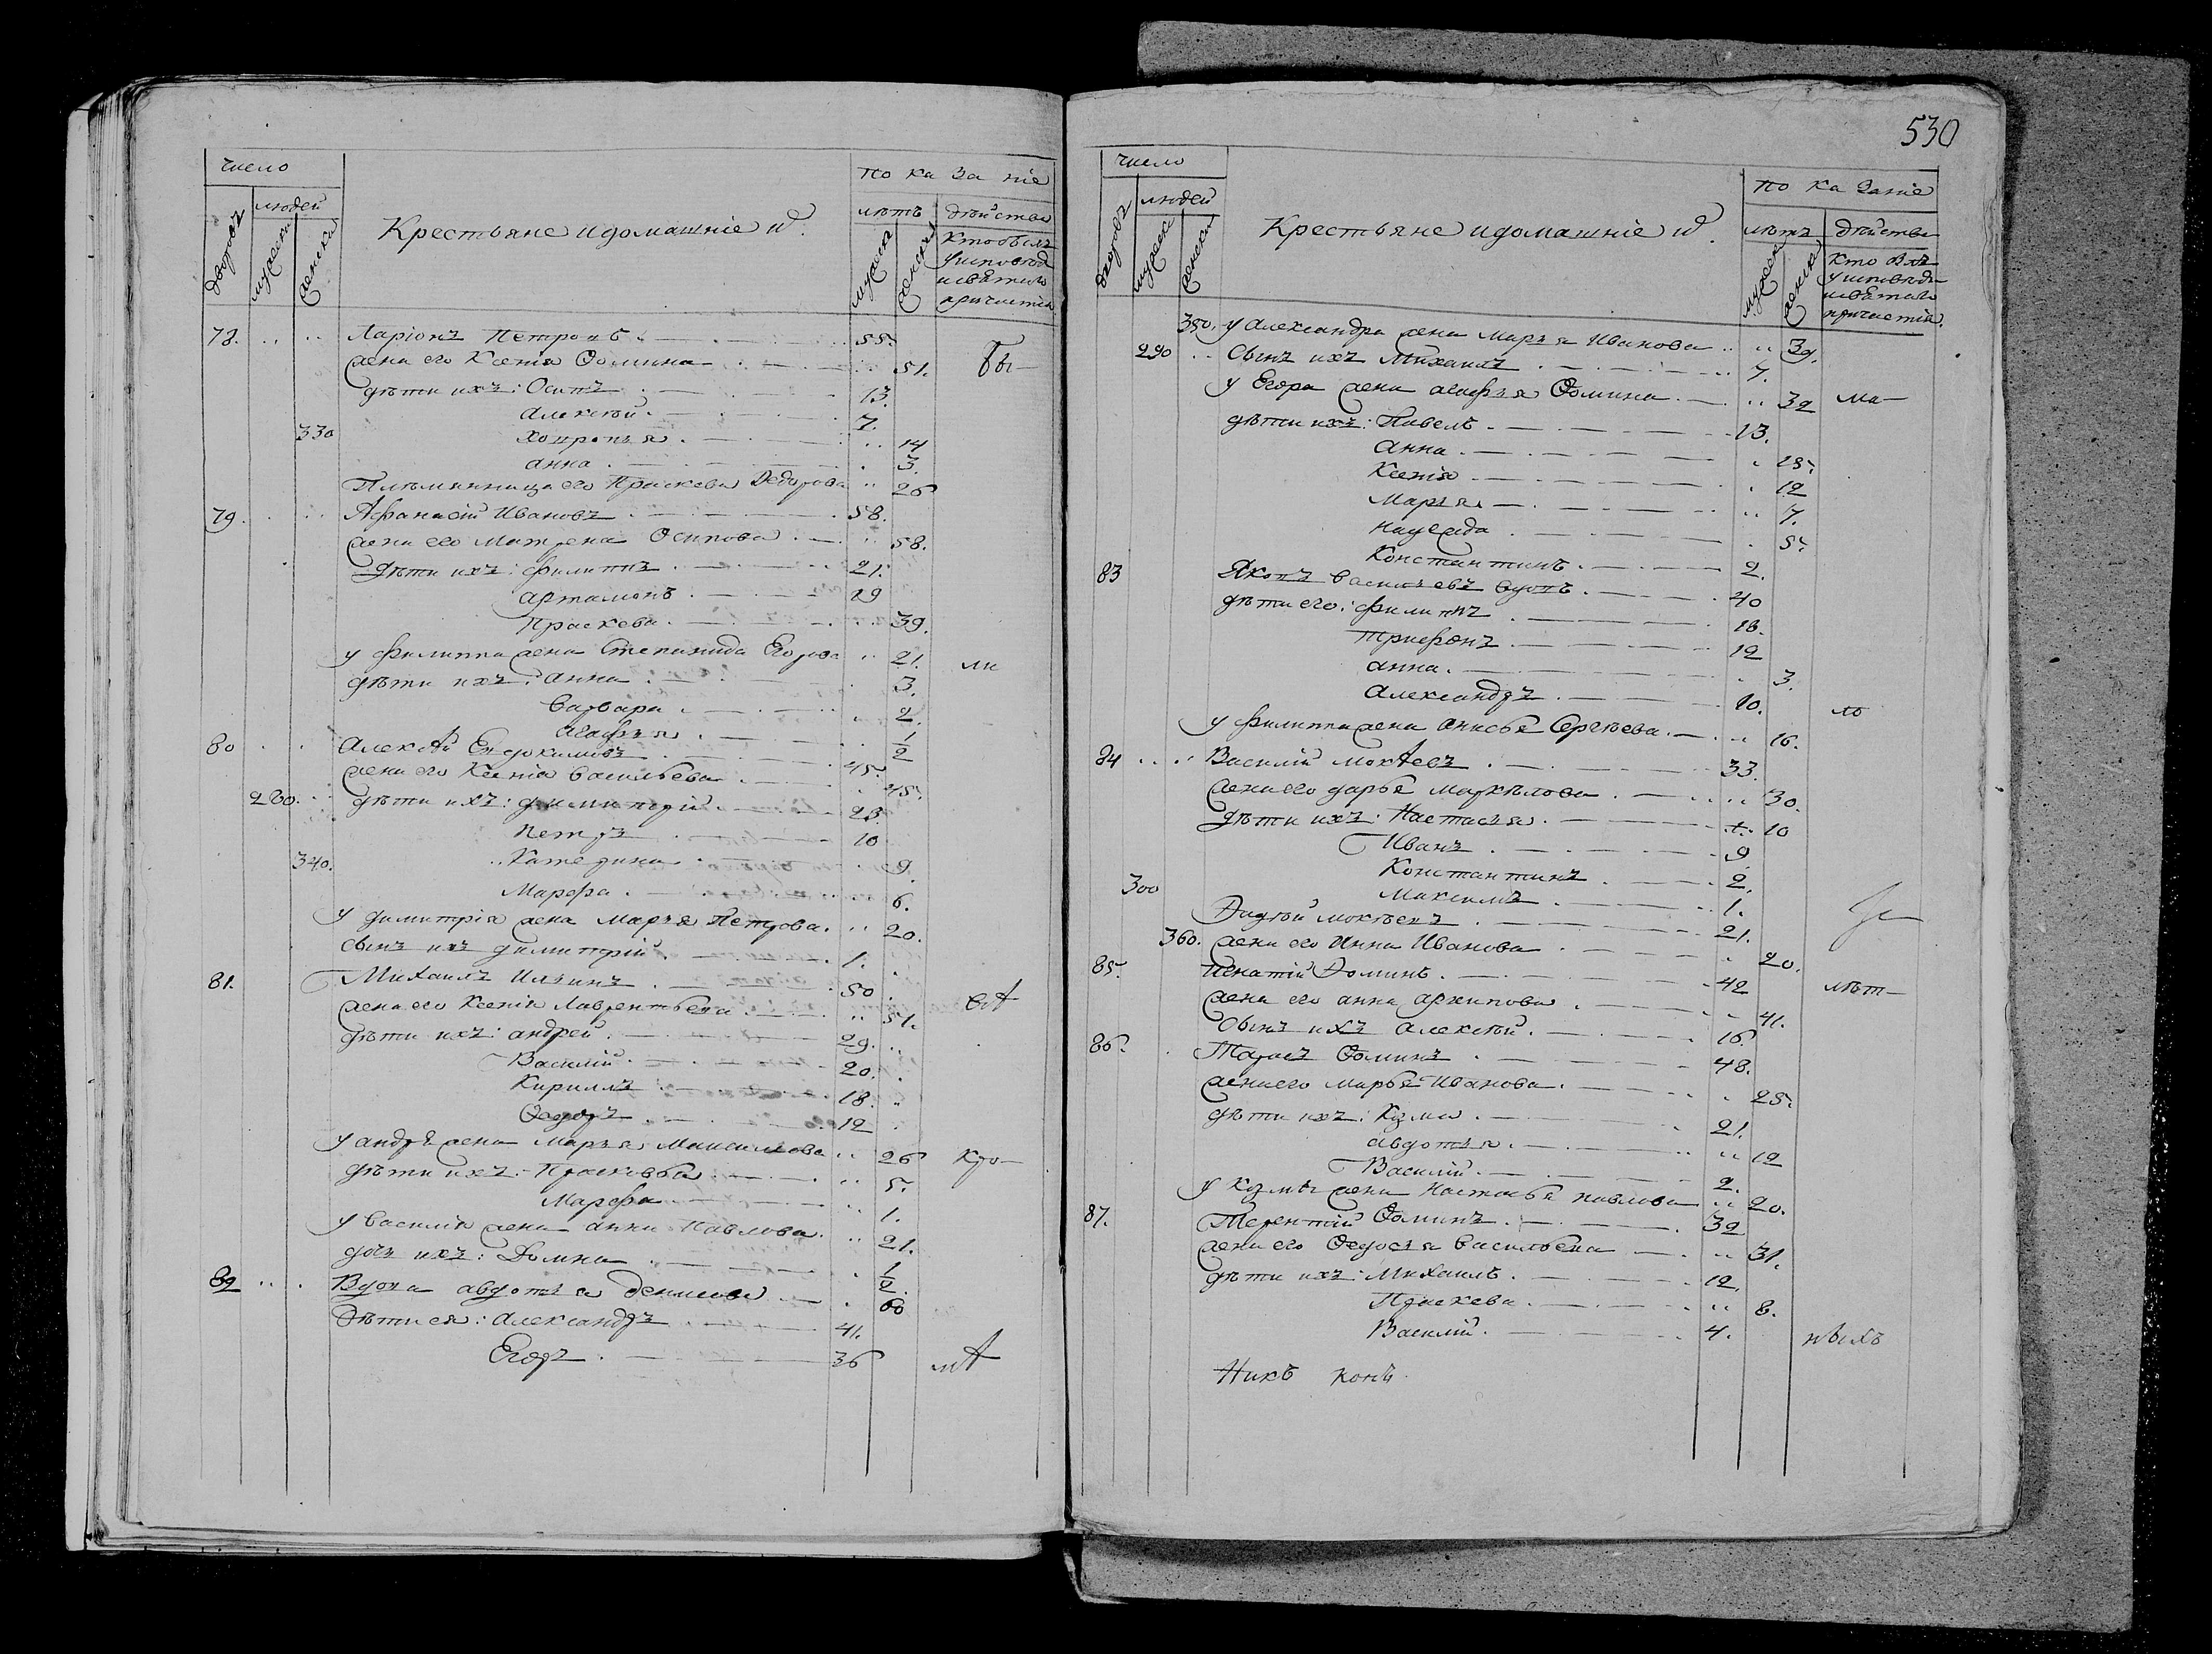 число
по ка за ніе
людей
лѣтъ
дѣйства
дворовъ
мужеска
женска
Крестьяне и домашніе ихъ.
мужеска
женска
кто былъ
у исповѣди
и святаго
причастія
78. Ларіонъ Петровъ 55.
жена его Ксенія Фомина 51. бы—
дѣти ихъ: Осипъ 13.
Алексѣй 7.
330 14
анна 3.
Племянница его Праскева Федорова 26
79. Афанасій Ивановъ 58.
жена его Матрена Осипова 58.
дѣти ихъ: филиппъ 21.
артамонъ 19
праскева 39.
у филиппа жена Степанида Егорова 21. ли
дѣти ихъ: анна 3.
варвара 2.
агафья 1/2
80 алексѣй Евдокимовъ 45.
жена его Ксенія васильева 45.
280. дѣти ихъ: димитрій 23.
петръ 10
340. Катерина 9.
Марфа 6.
у димитрія жена марья Петрова 20.
сынъ ихъ димитрій 1.
81. Михаилъ Ильинъ 50
жена его Ксенія Лаврентьева 51. всѣ
дѣти ихъ: андрей 29.
Василій 20.
Кириллъ 18.
Федоръ 12
у андрея жена марья Максимова 26 кро—
дѣти ихъ: Прасковья 5.
Марфа 1.
у василія жена анна Павлова 21.
дочь ихъ: Домна 1/2.
82 Вдова авдотья денисова 60
Дѣти ея: Александръ 41.
Егоръ 36 мѣ
530
число
по ка заніе
людей
лѣтъ
дѣйства
дворовъ
мужеска
женска
Крестьяне и домашніе ихъ.
мужеска
женска
кто былъ
у исповѣди
и святаго
причастія.
350. у александра жена марья Иванова 39.
290 Сынъ ихъ Михаилъ 7.
у Егора жена агафья Фомина 32 ма—
дѣти ихъ: Павелъ 13.
анна 15.
Ксенія 12
Марья 7.
надежда 5.
Константинъ 2.
83 Яковъ васильевъ вдовъ 40
дѣти его: филиппъ 18.
трифонъ 12
анна 3.
александръ 10. ло
у филиппа жена анисья Сергѣева 16.
84 Василій мокѣевъ 33.
жена его дарья маркелова 30.
дѣти ихъ: Настасья 10
Иванъ 9
Константинъ 2.
300 Максимъ 1.
мокѣевъ 21.
360. жена его Анна Иванова 20.
85. Игнатій Фоминъ 42 лѣт—
жена его анна архипова 41.
сынъ ихъ алексѣй 16
86. Тарасъ Фоминъ 48.
жена его марья Иванова 25.
дѣти ихъ: Кузма 21.
авдотья 12
Василій 2.
у кузмы жена Настасья павлова 20.
87. Терентій Фоминъ 32
жена его Федосья васильева 31.
дѣти ихъ: Михаилъ 12.
Праскева 8.
Василій 4. ныхъ